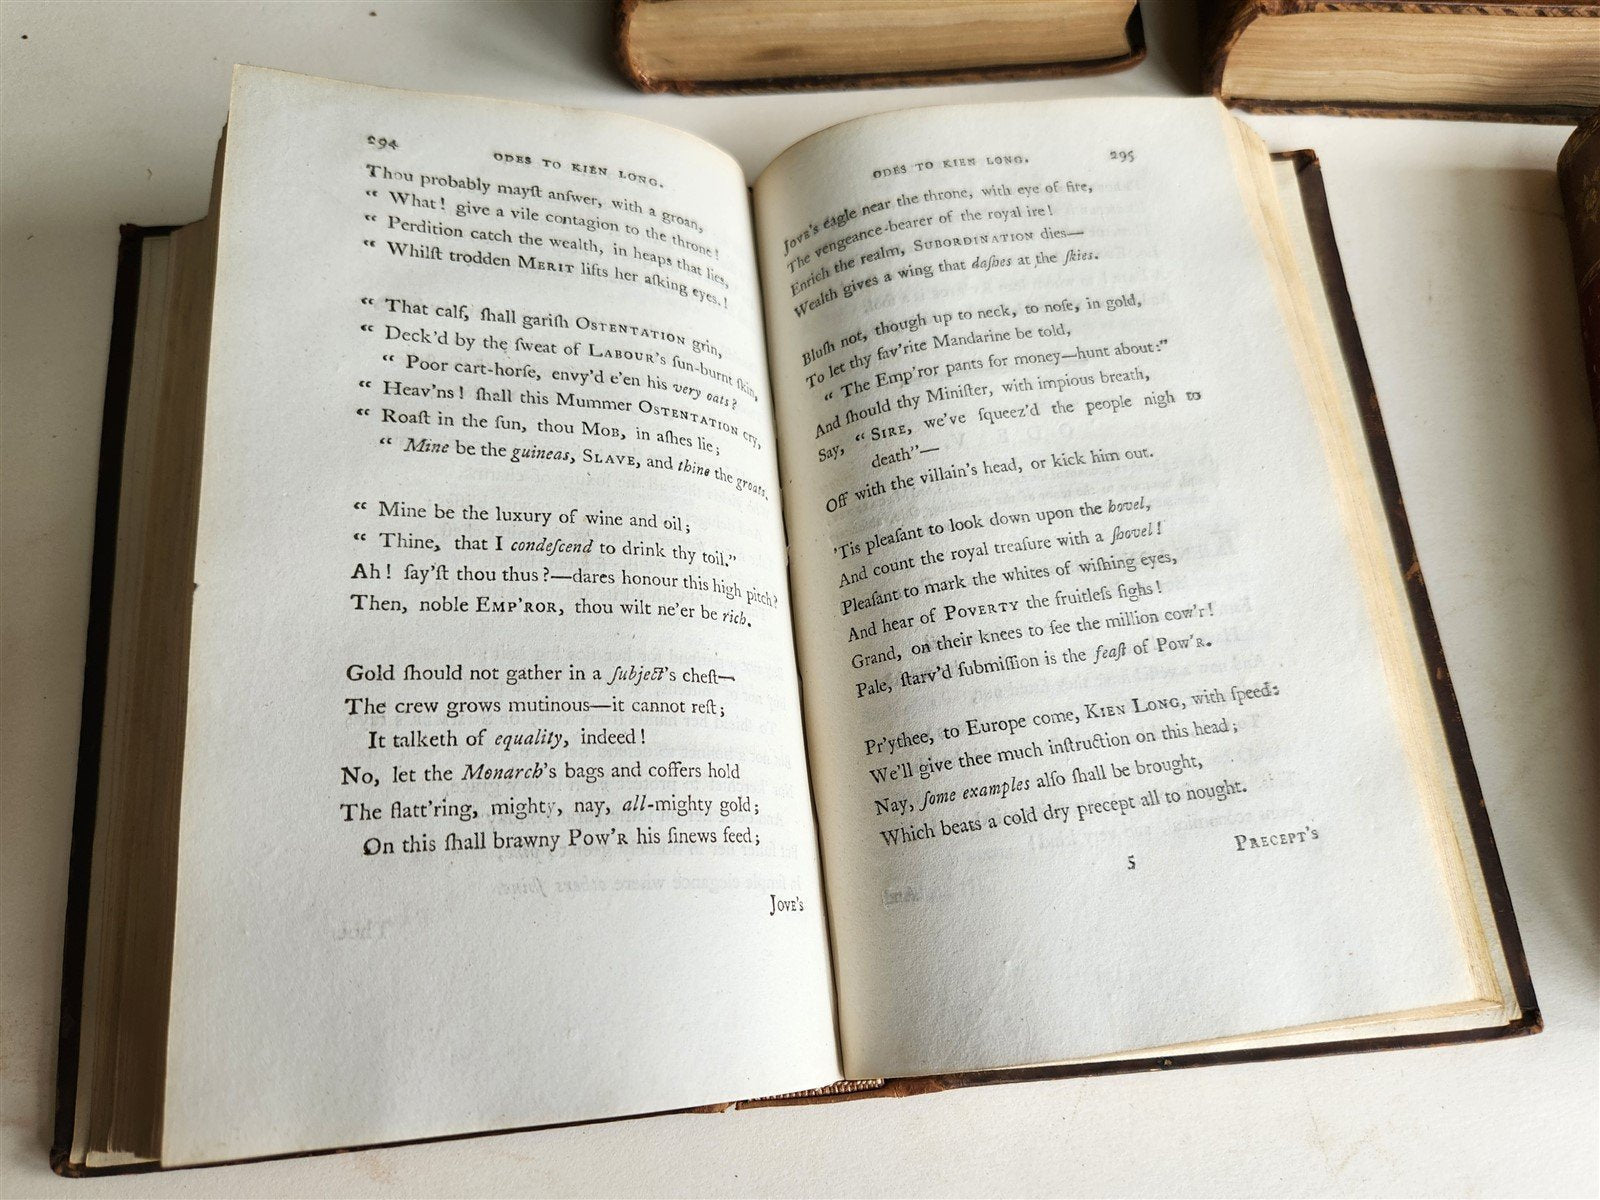 294
ODES TO KIEN LONG.
Thou probably mayſt anſwer, with a groan,
“ What! give a vile contagion to the throne!
“ Perdition catch the wealth, in heaps that lies,
“ Whilſt trodden MERIT lifts her aſking eyes!
“ That calf, ſhall gariſh OSTENTATION grin,
“ Deck’d by the ſweat of LABOUR’s ſun-burnt ſkin,
“ Poor cart-horſe, envy’d e’en his very oats?
“ Heav’ns! ſhall this Mummer OSTENTATION cry,
“ Roaſt in the ſun, thou MOB, in aſhes lie;
“ Mine be the guineas, SLAVE, and thine the groats.
“ Mine be the luxury of wine and oil;
“ Thine, that I condeſcend to drink thy toil.”
Ah! ſay’ſt thou thus?—dares honour this high pitch?
Then, noble EMP’ROR, thou wilt ne’er be rich.
Gold ſhould not gather in a ſubject’s cheſt—
The crew grows mutinous—it cannot reſt;
It talketh of equality, indeed!
No, let the Monarch’s bags and coffers hold
The flatt’ring, mighty, nay, all-mighty gold;
On this ſhall brawny POW’R his ſinews feed;
JOVE’S
ODES TO KIEN LONG.
295
JOVE’S eagle near the throne, with eye of fire,
The vengeance-bearer of the royal ire!
Enrich the realm, SUBORDINATION dies—
Wealth gives a wing that daſhes at the ſkies.
Bluſh not, though up to neck, to noſe, in gold,
To let thy fav’rite Mandarine be told,
“ The Emp’ror pants for money—hunt about:”
And ſhould thy Miniſter, with impious breath,
Say, “ SIRE, we’ve ſqueez’d the people nigh to
death”—
Off with the villain’s head, or kick him out.
’Tis pleaſant to look down upon the hovel,
And count the royal treaſure with a ſhovel!
Pleaſant to mark the whites of wiſhing eyes,
And hear of POVERTY the fruitleſs ſighs!
Grand, on their knees to ſee the million cow’r!
Pale, ſtarv’d ſubmiſſion is the feaſt of POW’R.
Pr’ythee, to Europe come, KIEN LONG, with ſpeed:
We’ll give thee much inſtruction on this head;
Nay, ſome examples alſo ſhall be brought,
Which beats a cold dry precept all to nought.
5
PRECEPT’S